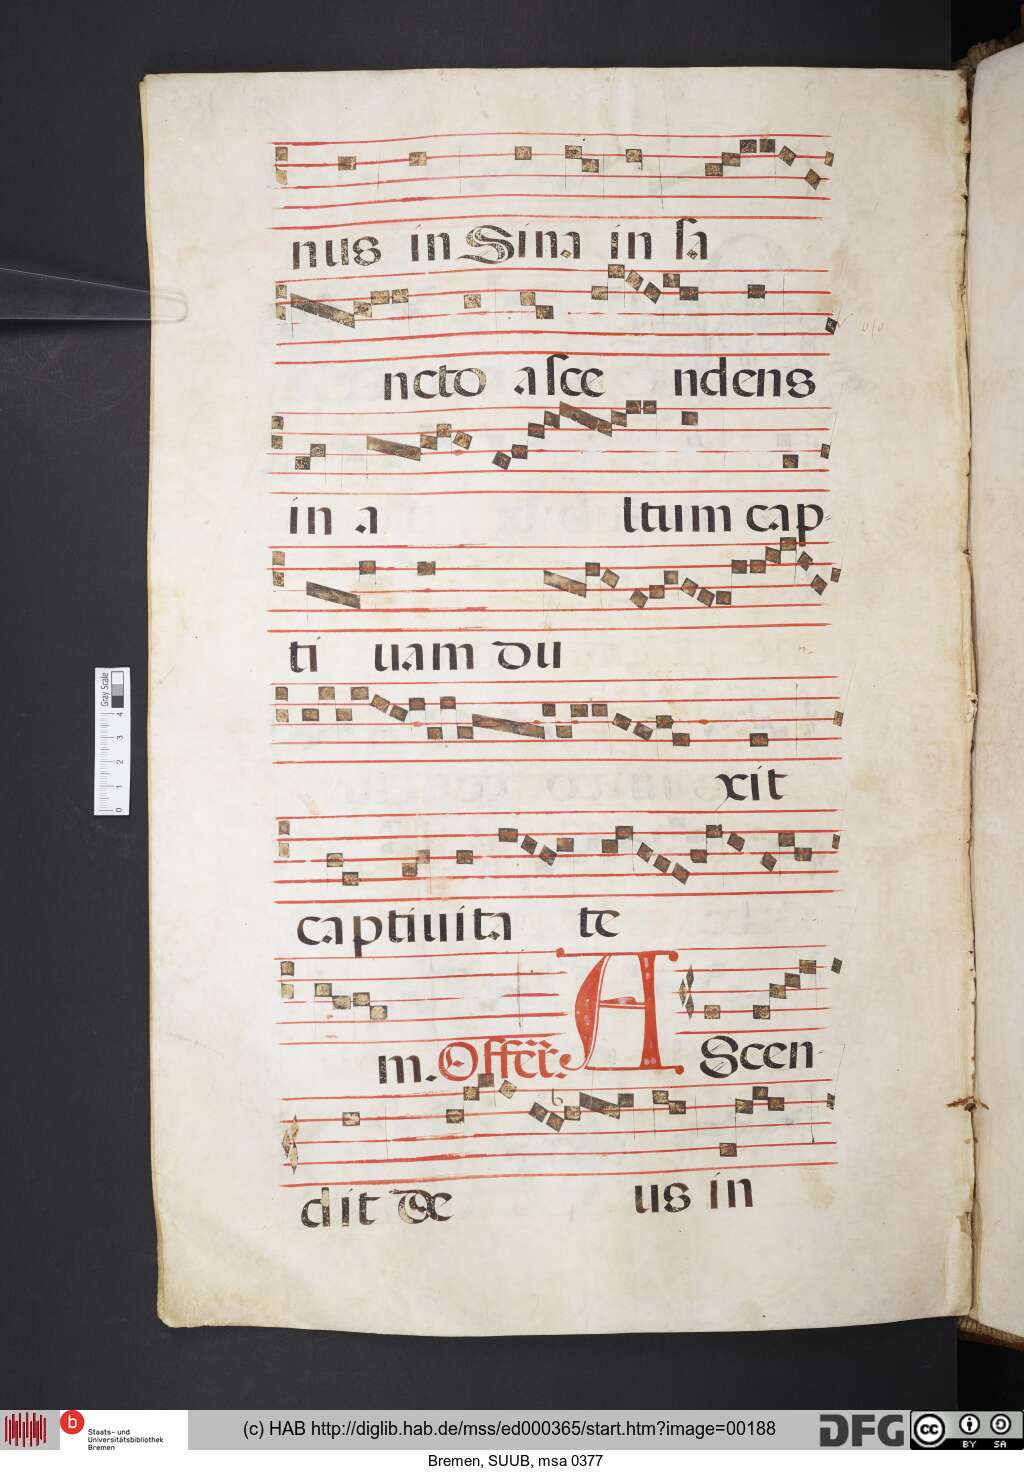 nus in Sina in sa
ncto ascendens
in altum cap-
ti uam du
xit
captiuita te
m. Offer. AScen-
dit de us in
Gray Scale
0 1 2 3 4
b Staats- und Universitätsbibliothek Bremen
(c) HAB http://diglib.hab.de/mss/ed000365/start.htm?image=00188
DFG
cc BY SA
Bremen, SUUB, msa 0377